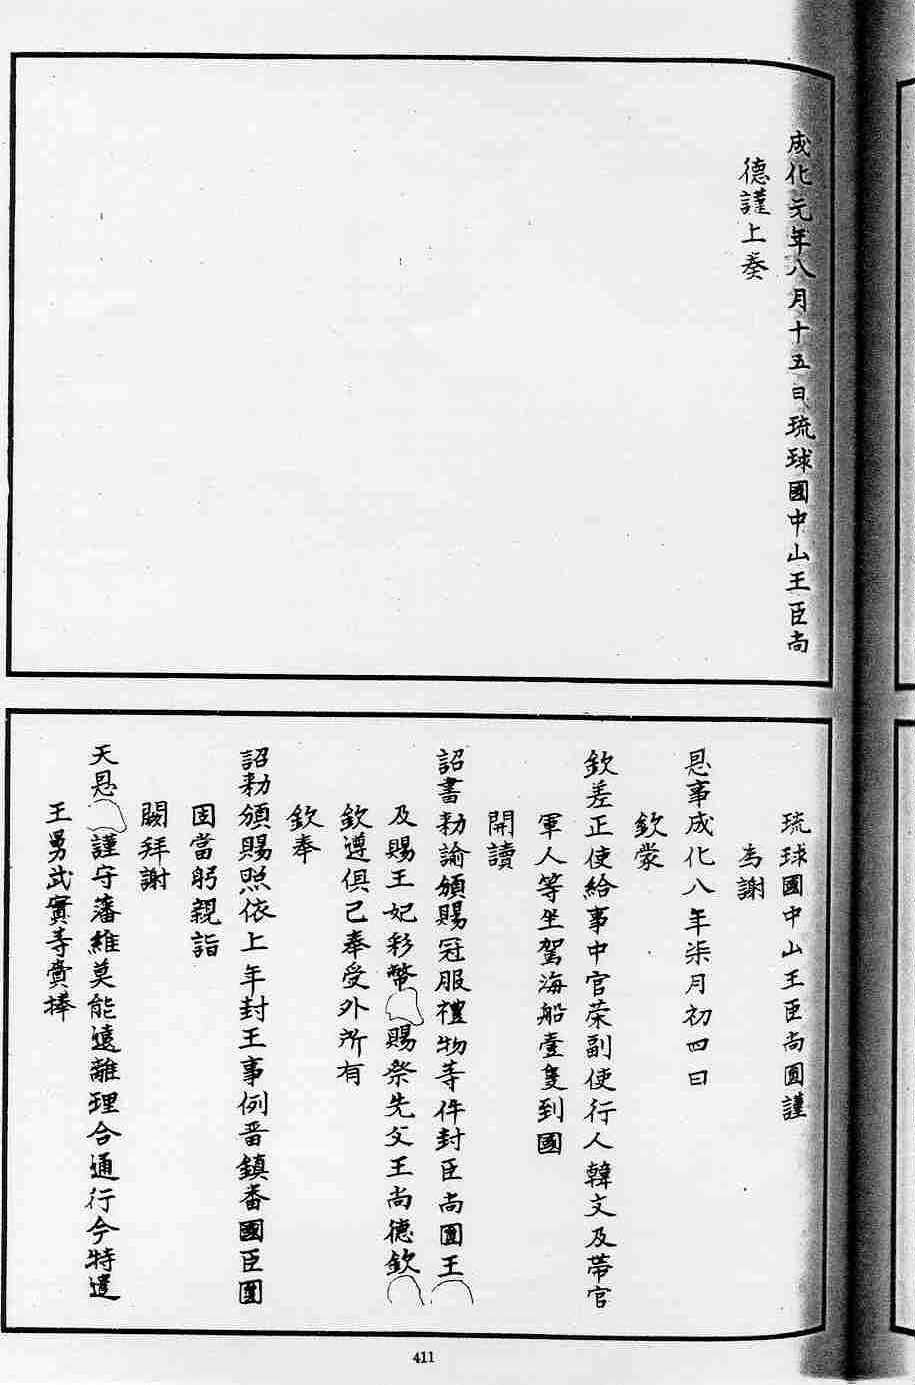 成化元年八月十五日琉球國中山王臣尚
德謹上奏
琉球國中山王臣尚圓謹
為謝
恩事成化八年柒月初四日
欽蒙
欽差正使給事中官荣副使行人韓文及帶官
軍人等坐駕海船壹隻到國
開讀
詔書勅諭頒賜冠服禮物等件封臣尚圓王
及賜王妃彩幣賜祭先父王尚德欽
欽遵俱已奉受外所有
欽奉
詔勅頒賜照依上年封王事例晋鎮番國臣圓
固當躬親詣
闕拜謝
天恩謹守藩維莫能遠離理合通行今特遣
王舅武實等賫捧
411